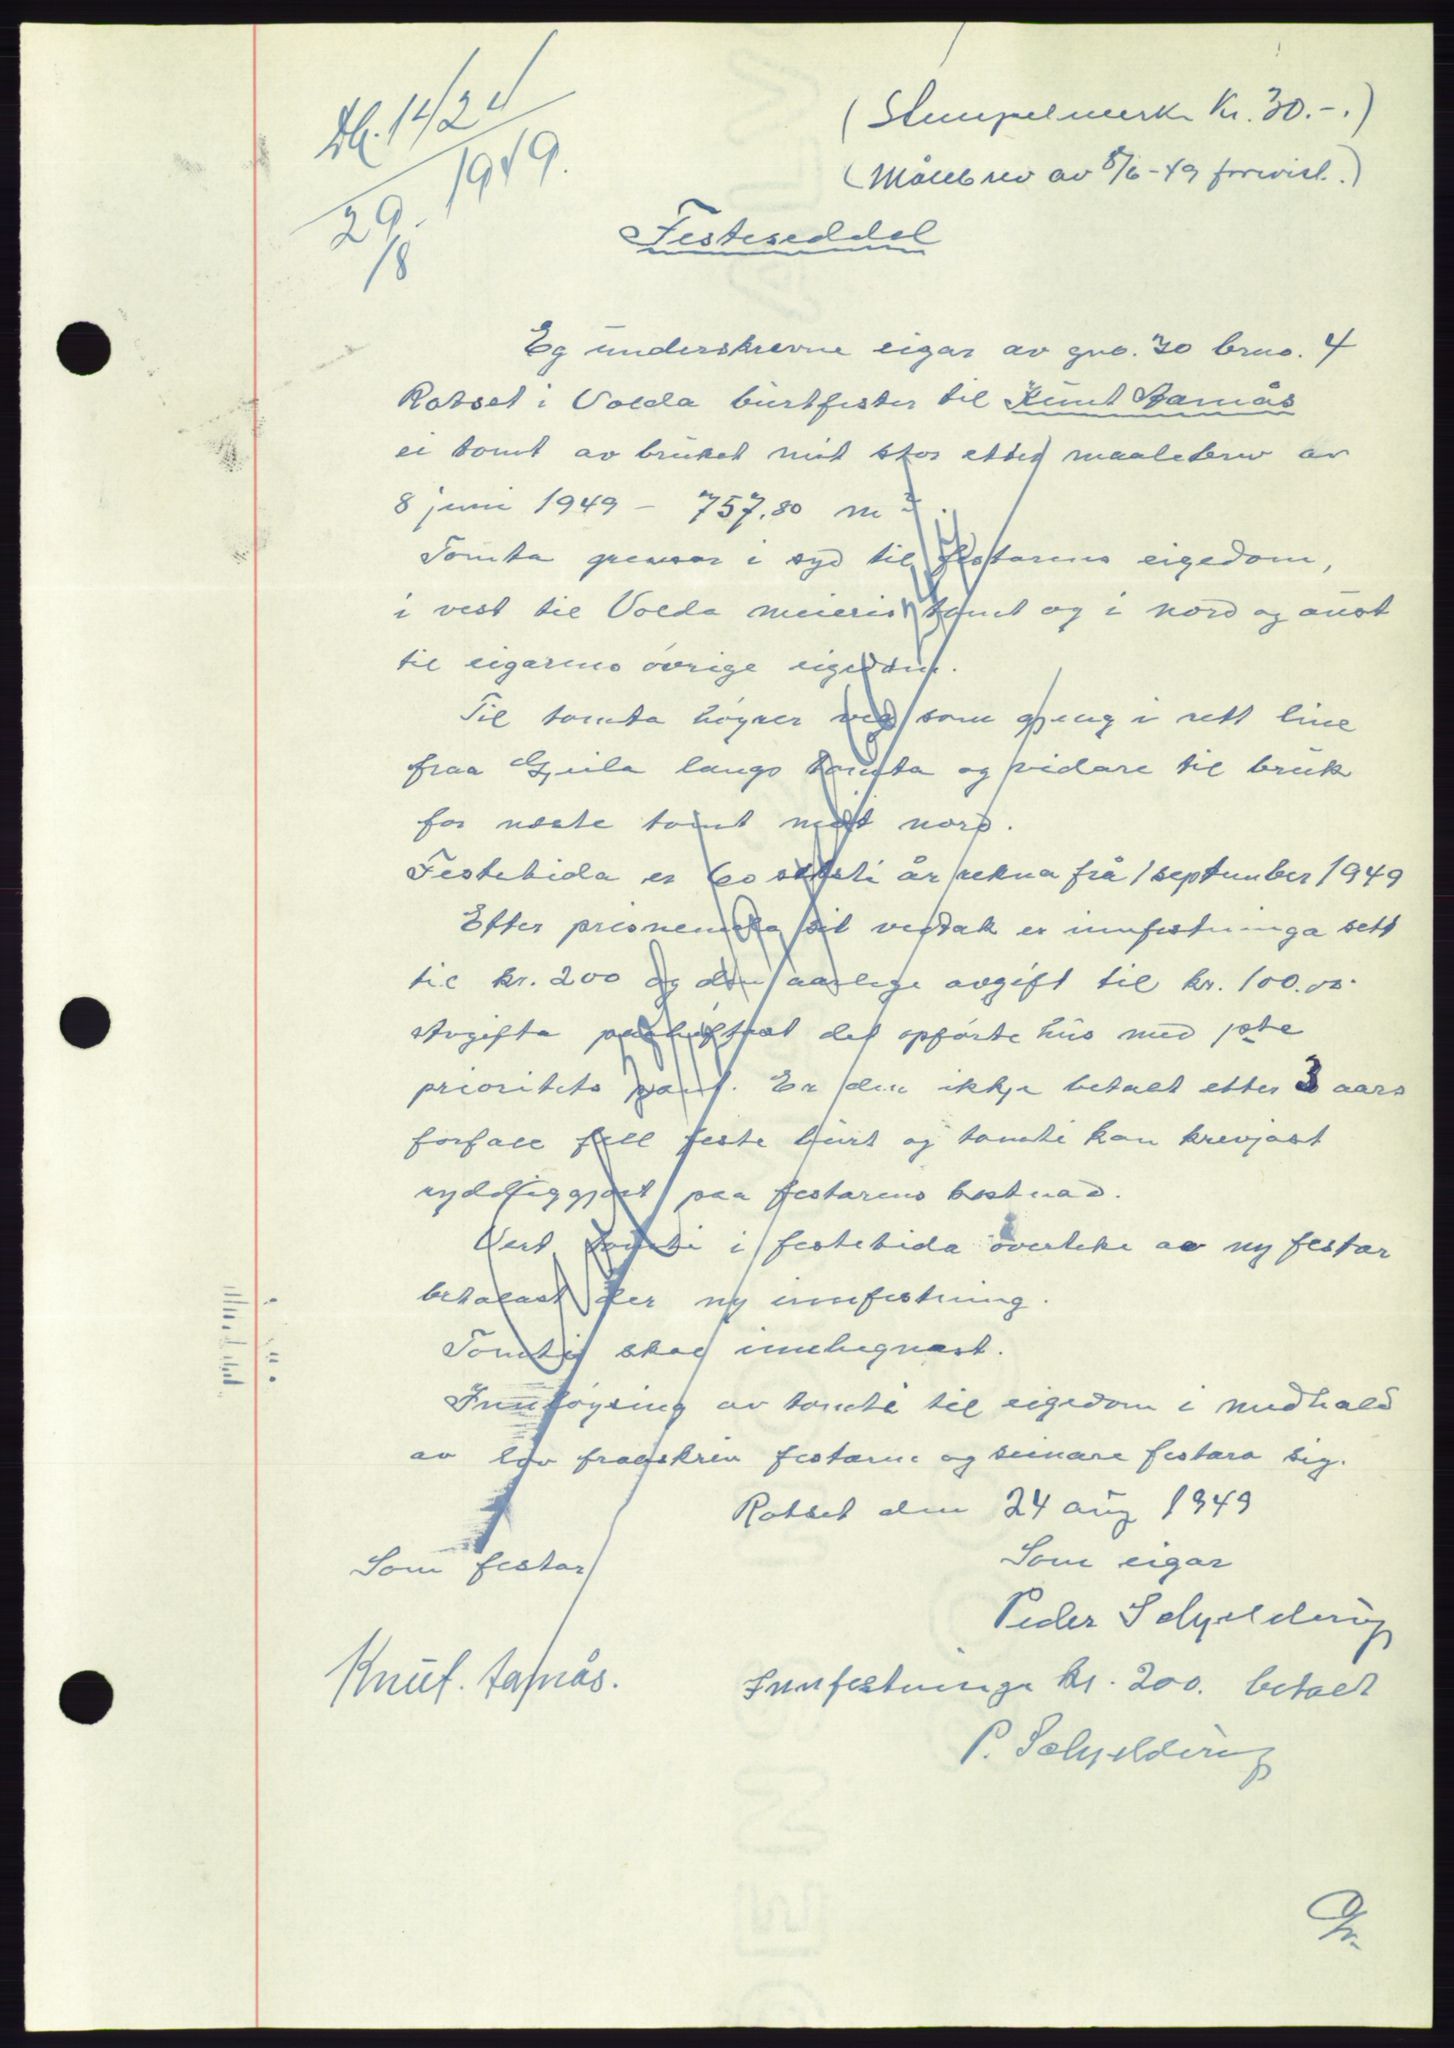 Db. 1424/1949.
29/8
(Stempelmerke Kr. 30.-.)
(Målebrev av 8/6-49 forevist.)
Festeseddel
Eg underskrevne eigar av gno. 30 brno. 4
Rotset i Volda burtfester til Knut Aamås
ei tomt av bruket mit stor etter maalebrev av
8 juni 1949 - 757,80 m²
Tomta grensar i syd til festarens eigedom,
i vest til Volda meieris tomt og i nord og aust
til eigarens övrige eigedom.
Til tomta höyrer veg som gjeng i rett line
fraa Gjeila langs tomta og vidare til bruk
for neste tomt mot nord.
Festetida er 60 seksti år rekna frå 1 september 1949
Etter prisnemda sit vedtak er innfestninga sett
til kr. 200 og den aarlege avgift til kr. 100.00.
Avgifta paaheftast det opförte hus med 1ste
prioritets pant. Er den ikkje betalt etter 3 aars
forfall fell feste burt og tomti kan krevjast
ryddiggjort paa festarens kostnad.
Vert tomti i festetida overteke av ny festar
betalast der ny innfestning.
Tomti skal innhegnast.
Innlöysing av tomti til eigedom i medhald
av lov fraaskriv festarne og seinare festara sig.
Rotset den 24 aug 1949
Som festar
Som eigar
Peder Schjelderup
Knut. Aamås.
Innfestninga kr. 200. betalt
P. Schjelderup